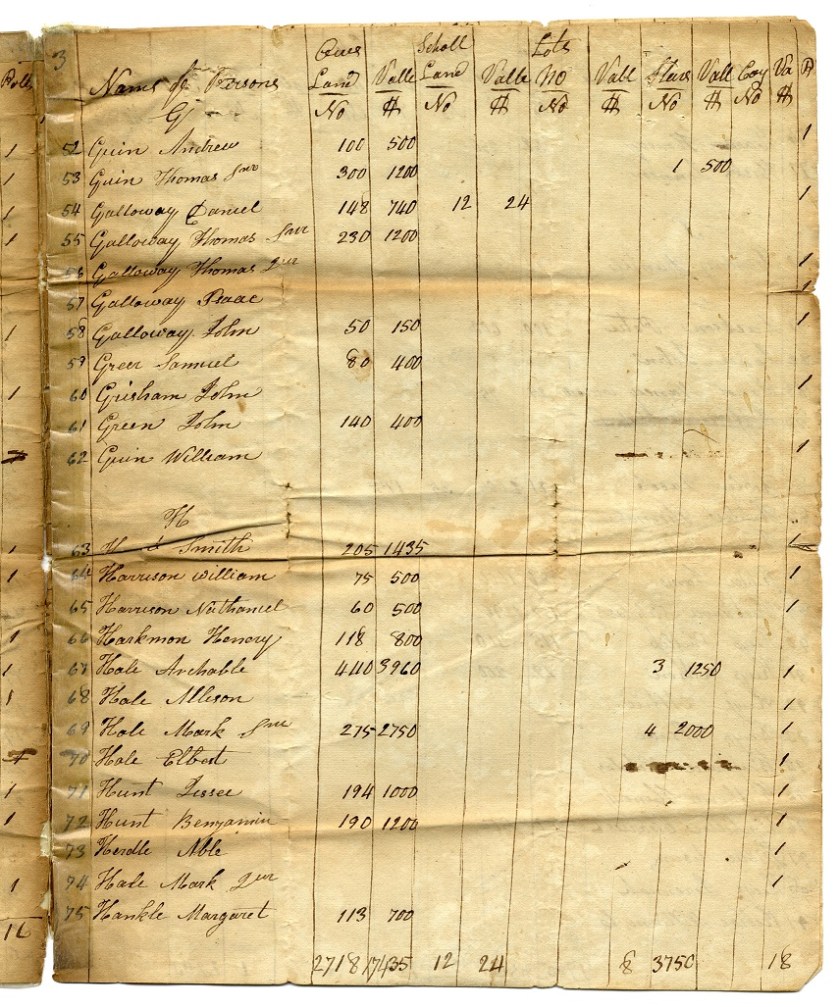 3 Acres Scholl Lots
Polls Names of Persons Land Valle Land Valle No Vall Slaves Vall Coy Va P
No $ No $ No $ No $ No $
G
1 52 Guin Andrew 100 500 1
1 53 Guin Thomas Snr 300 1200 1 500
1 54 Galloway Daniel 148 740 12 24 1
1 55 Galloway Thomas Snr 230 1200
56 Galloway Thomas Jur 1
57 Galloway Isaac 1
1 58 Galloway John 50 150 1
59 Greer Samuel 80 400
1 60 Grisham John 1
61 Green John 140 400
62 Guin William 1
H
1 63 Smith 205 1435 1
1 64 Harrison William 75 500 1
65 Harrison Nathaniel 60 500 1
1 66 Harkmon Henery 118 800
1 67 Hale Archable 440 3960 3 1250 1
1 68 Hale Allison 1
69 Hale Mark Snr 275 2750 4 2000 1
70 Hale Elbert 1
1 71 Hunt Jessee 194 1000 1
1 72 Hunt Benjamin 190 1200 1
73 Herdle Able 1
1 74 Hale Mark Jur 1
75 Hankle Margaret 113 700
16
2718 17435 12 24 8 3750 18